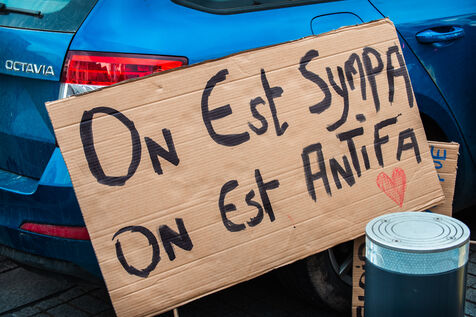 OCTAVIA
On Est Sympa
On Est AntiFa